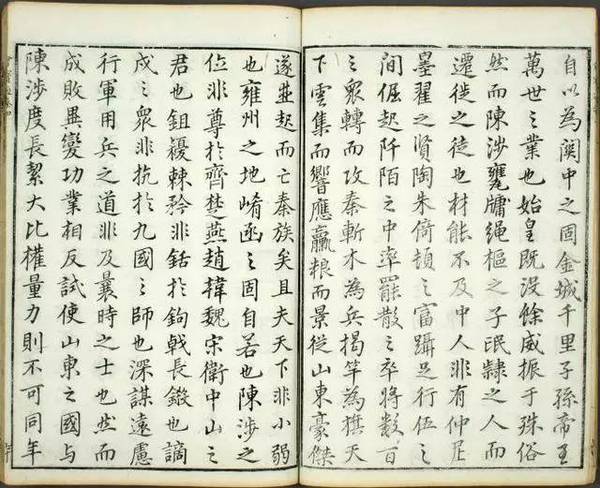 自以為関中之固金城千里子孫帝王
萬世之業也始皇既沒餘威振于殊俗
然而陳涉甕牖繩樞之子氓隸之人而
遷徙之徒也材能不及中人非有仲尼
墨翟之賢陶朱倚頓之富躡足行伍之
間倔起阡陌之中率罷散之卒將數百
之眾轉而攻秦斬木為兵揭竿為旗天
下雲集而響應贏粮而景從山東豪傑
遂並起而亡秦族矣且夫天下非小弱
也雍州之地崤函之固自若也陳涉之
位非尊於齊楚燕趙韓魏宋衛中山之
君也鉏櫌棘矜非銛於鉤戟長鎩也謫
戍之眾非抗於九國之師也深謀遠慮
行軍用兵之道非及曩時之士也然而
成敗異變功業相反試使山東之國與
陳涉度長絜大比權量力則不可同年